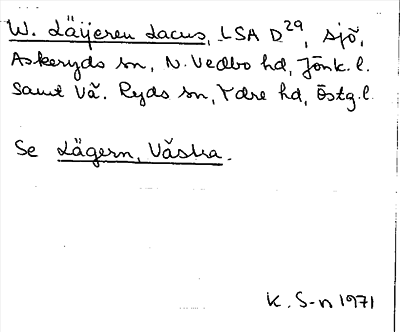 W. Läijeren Lacus, LSA D29, sjö,
Askeryds sn, N. Vedbo hd, Jönk. l.
Samt Vä. Ryds sn, Ydre hd, Östg. l.
Se Lägern, Västra.
K. S-n 1971